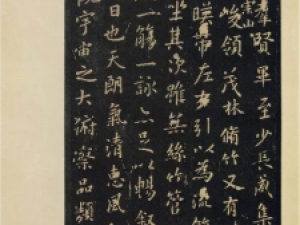 羣賢畢至少長咸集
崇山
峻領茂林脩竹又有
暎帶左右引以為流
坐其次雖無絲竹管
一觴一詠亦足以暢敘
日也天朗氣清惠風
宇宙之大俯察品類